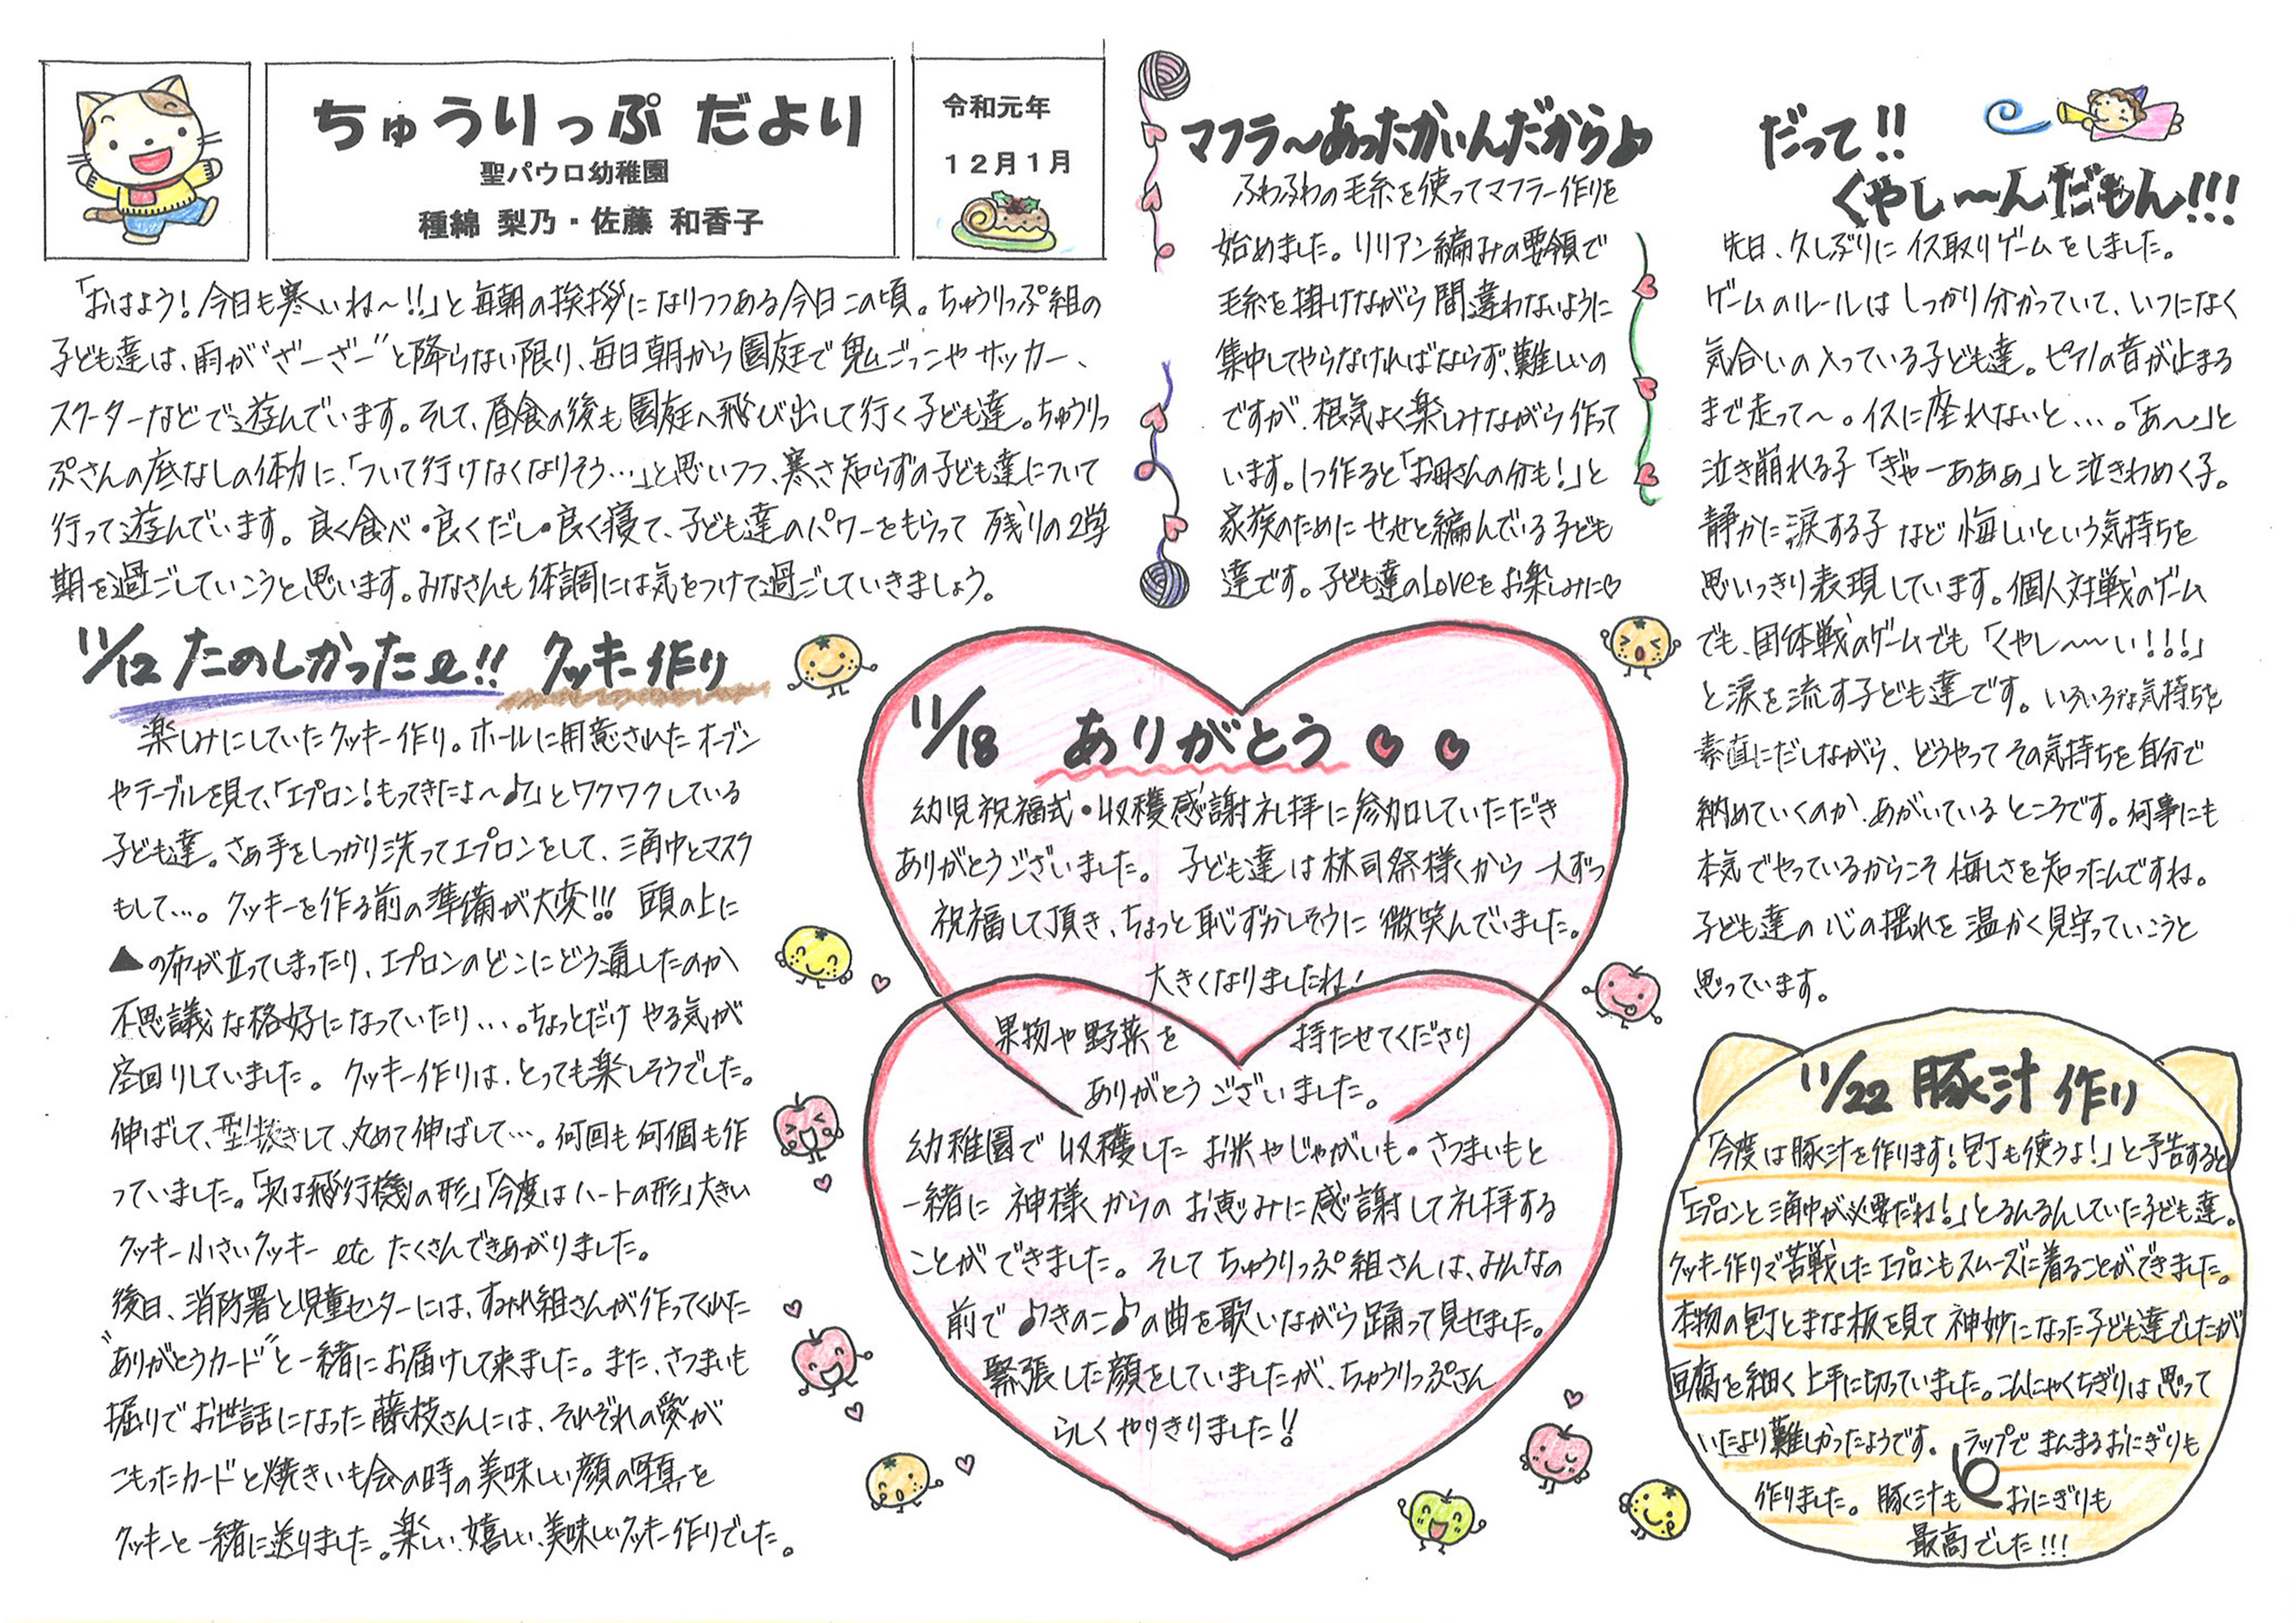 ちゅうりっぷ だより
聖パウロ幼稚園
種綿 梨乃・佐藤 和香子
令和元年
12月1月
「おはよう！今日も寒いね〜!!」と毎朝の挨拶になりつつある今日この頃。ちゅうりっぷ組の
子ども達は、雨が“ざーざー”と降らない限り、毎日朝から園庭で鬼ごっこやサッカー、
スクーターなどで遊んでいます。そして、昼食の後も園庭へ飛び出して行く子ども達。ちゅうりっ
ぷさんの底なしの体力に、「ついて行けなくなりそう…」と思いつつ、寒さ知らずの子ども達について
行って遊んでいます。良く食べ・良くだし・良く寝て、子ども達のパワーをもらって残りの2学
期を過ごしていこうと思います。みなさんも体調には気をつけて過ごしていきましょう。
11/12 たのしかったe!! クッキー作り
楽しみにしていたクッキー作り。ホールに用意されたオーブン
やテーブルを見て、「エプロン！もってきたよ〜♪」とワクワクしている
子ども達。さぁ手をしっかり洗ってエプロンをして、三角巾とマスク
もして…。クッキーを作る前の準備が大変!!! 頭の上に
▲の布が立ってしまったり、エプロンのどこにどう通したのか
不思議な格好になっていたり…。ちょっとだけやる気が
空回りしていました。クッキー作りは、とっても楽しそうでした。
伸ばして、型抜きして、丸めて伸ばして…。何回も何個も作
っていました。「次は飛行機の形」「今度はハートの形」大きい
クッキー小さいクッキー etc たくさんできあがりました。
後日、消防署と児童センターには、すみれ組さんが作ってくれた
“ありがとうカード”と一緒にお届けして来ました。また、さつまいも
掘りでお世話になった藤枝さんには、それぞれの愛が
こもったカードと焼きいも会の時の美味しい顔の写真を
クッキーと一緒に送りました。楽しい、嬉しい、美味しいクッキー作りでした。
マフラ〜あったかいんだから♪
ふわふわの毛糸を使ってマフラー作りを
始めました。リリアン編みの要領で
毛糸を掛けながら間違わないように
集中してやらなければならず、難しいの
ですが、根気よく楽しみながら作って
います。1つ作ると「お母さんの分も！」と
家族のためにせっせと編んでいる子ども
達です。子ども達のLoveをお楽しみに♡
11/18 ありがとう
幼児祝福式・収穫感謝礼拝に参加していただき
ありがとうございました。子ども達は林司祭様から一人ずつ
祝福して頂き、ちょっと恥ずかしそうに微笑んでいました。
大きくなりましたね！
果物や野菜を 持たせてくださり
ありがとうございました。
幼稚園で収穫したお米やじゃがいも・さつまいもと
一緒に神様からのお恵みに感謝して礼拝する
ことができました。そしてちゅうりっぷ組さんは、みんなの
前で♪きのこ♪の曲を歌いながら踊って見せました。
緊張した顔をしていましたが、ちゅうりっぷさん
らしくやりきりました!!
だって!!
くやし〜〜んだもん!!!
先日、久しぶりにイス取りゲームをしました。
ゲームのルールはしっかり分かっていて、いつになく
気合いの入っている子ども達。ピアノの音が止まる
まで走って〜。イスに座れないと…。「あ〜」と
泣き崩れる子「ぎゃーあああ」と泣きわめく子。
静かに涙する子など悔しいという気持ちを
思いっきり表現しています。個人対戦のゲーム
でも、団体戦のゲームでも「くやし〜〜い!!!」
と涙を流す子ども達です。いろいろな気持ちを
素直にだしながら、どうやってその気持ちを自分で
納めていくのか、あがいているところです。何事にも
本気でやっているからこそ悔しさを知ったんですね。
子ども達の心の揺れを温かく見守っていこうと
思っています。
11/22 豚汁作り
「今度は豚汁を作ります！包丁も使うよ！」と予告すると
「エプロンと三角巾が必要だね！」とるんるんしていた子ども達。
クッキー作りで苦戦したエプロンもスムーズに着ることができました。
本物の包丁とまな板を見て神妙になった子ども達でしたが
豆腐を細く上手に切っていました。こんにゃくちぎりは思って
いたより難しかったようです。ラップでまんまるおにぎりも
作りました。豚汁もおにぎりも
最高でした!!!